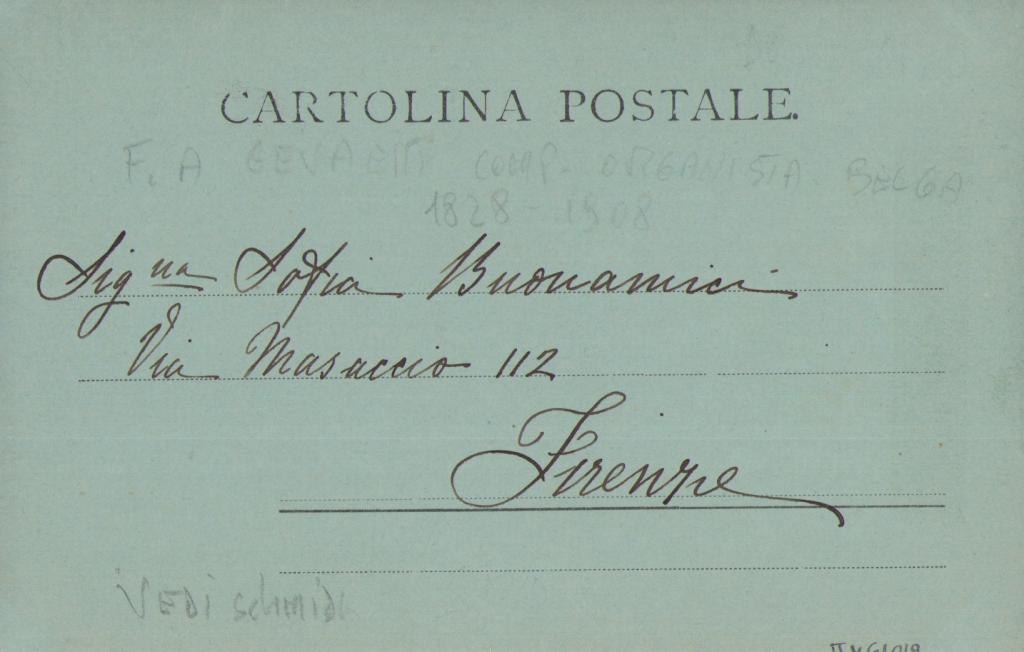 CARTOLINA POSTALE.
F. A GEVAERT COMP. ORGANISTA BELGA
1828 - 1908
Sig.na Sofia Buonamici
Via Masaccio 112
Firenze
VEDI schmidl